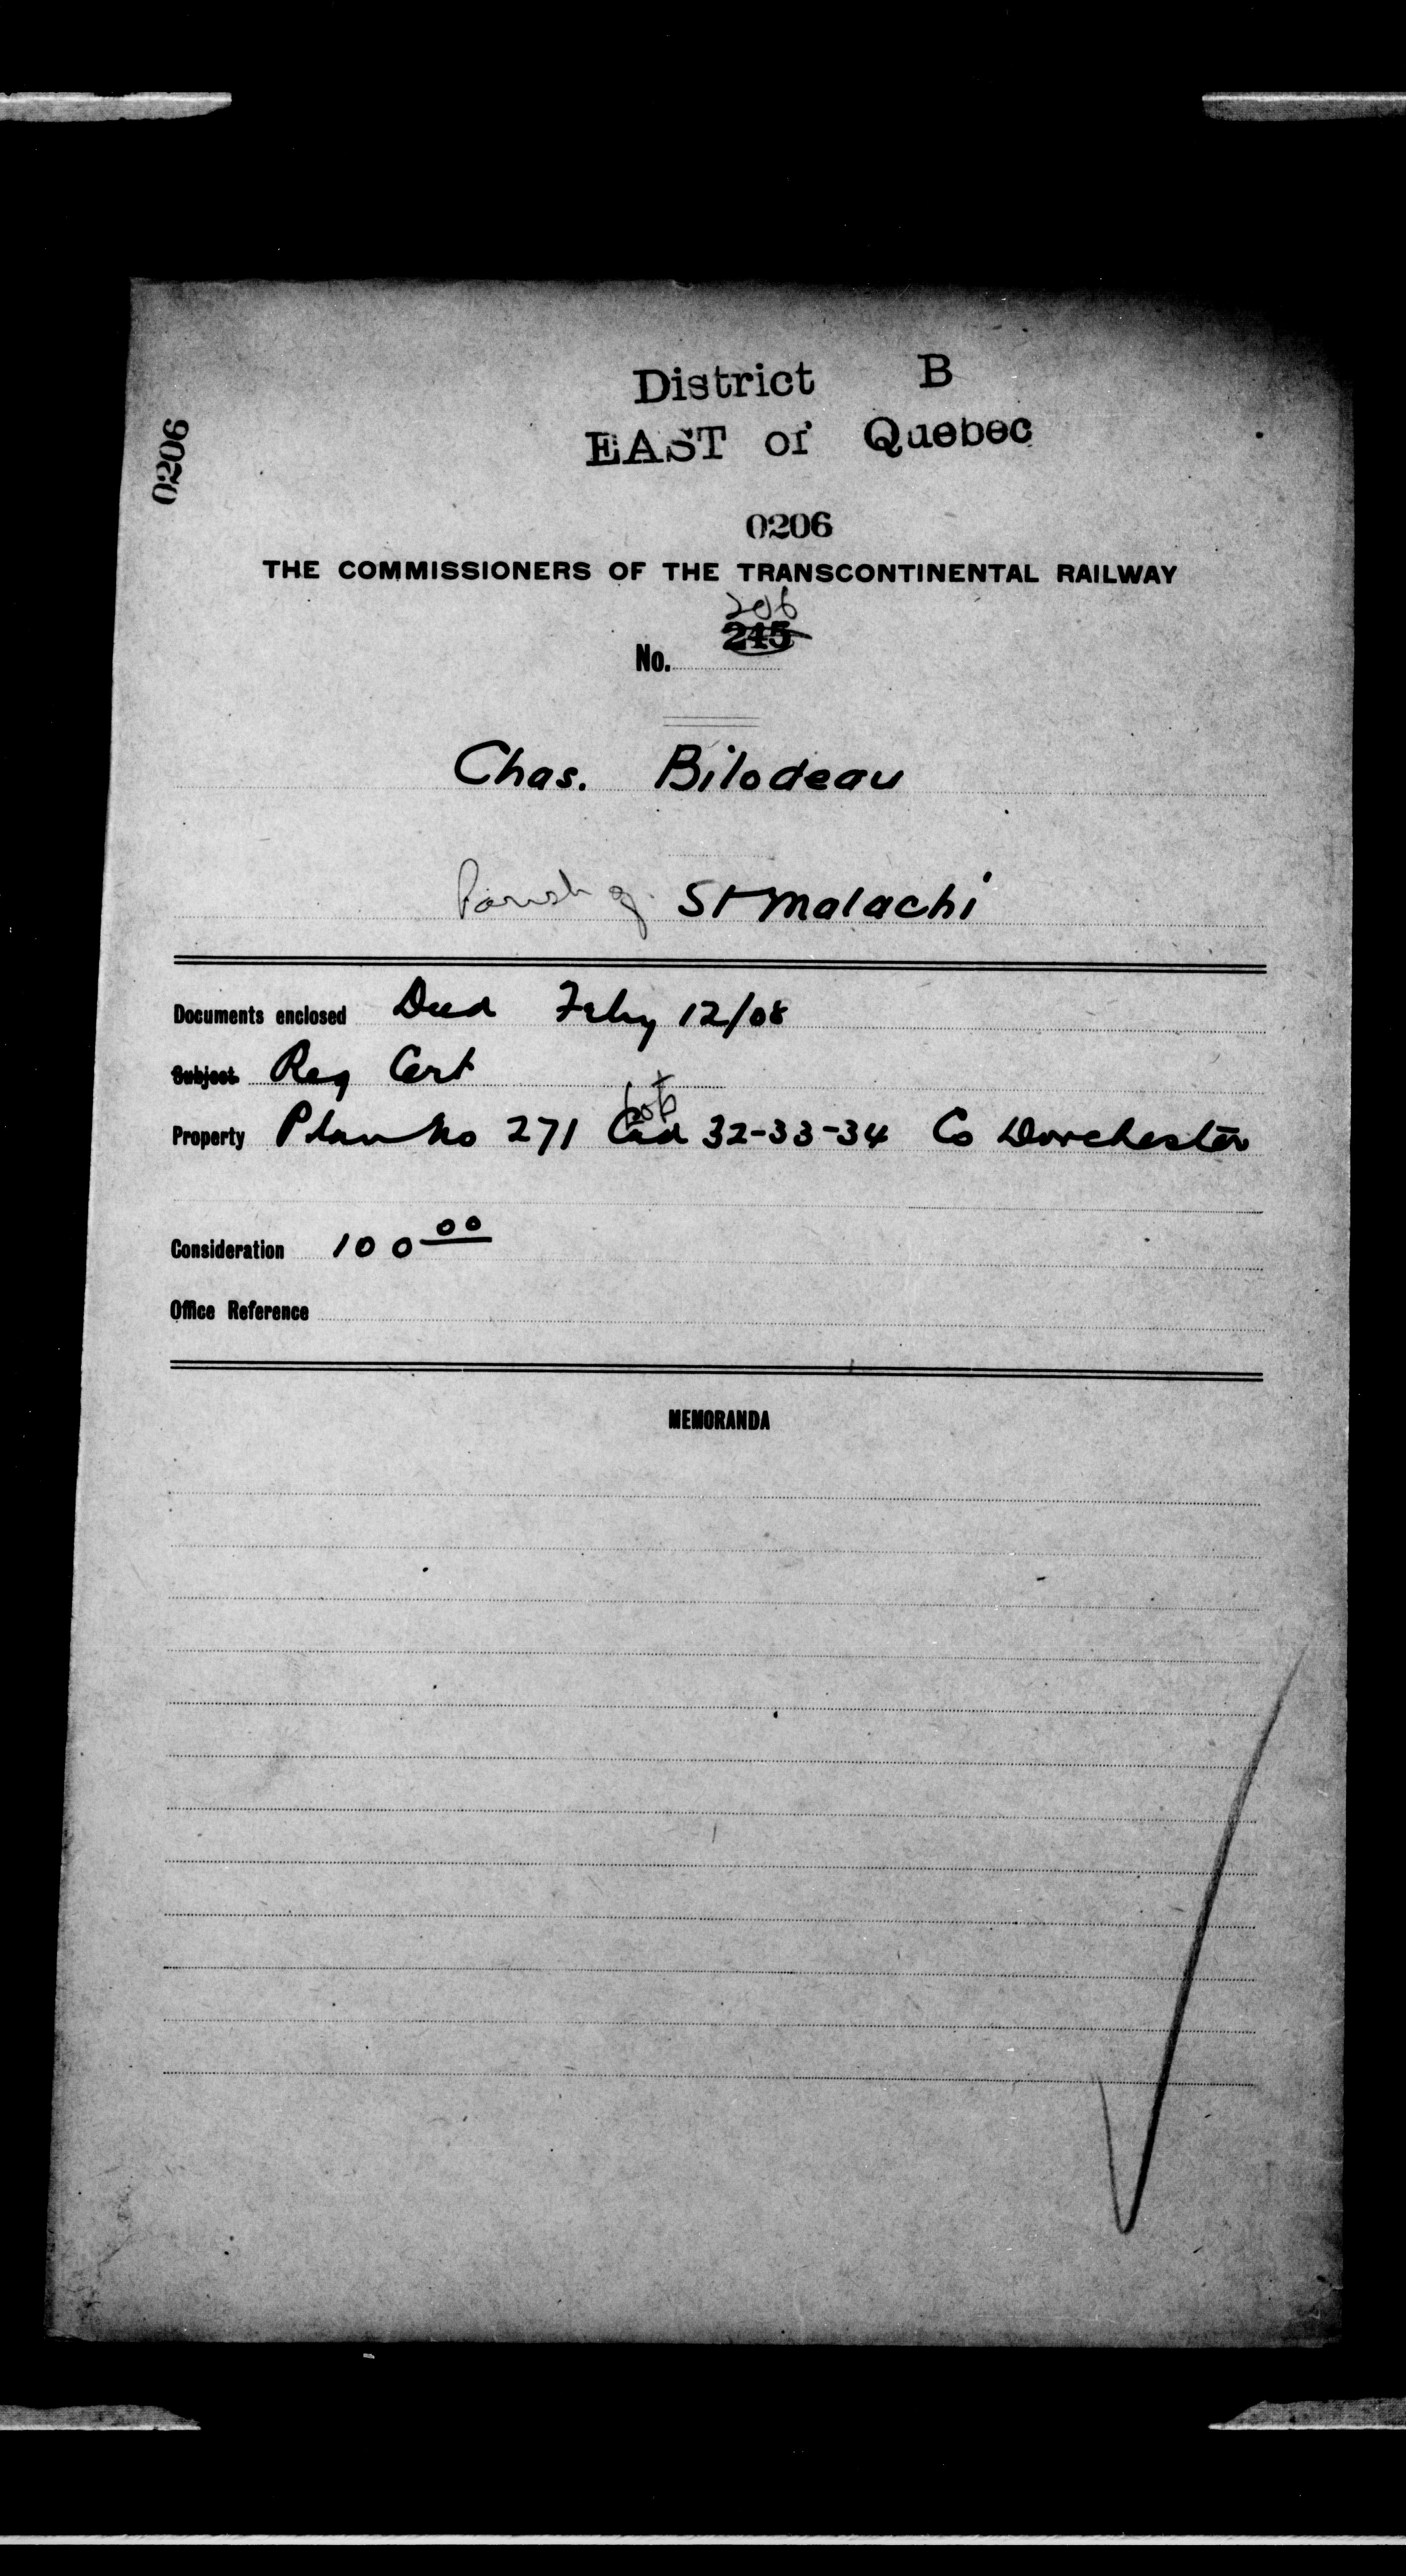 District B
EAST of Quebec
0206
0206
THE COMMISSIONERS OF THE TRANSCONTINENTAL RAILWAY
206
No. 245
Chas. Bilodeau
Parish of St Malachi
Documents enclosed Deed Feby 12/08
Subject Reg Cert
Lot
Property Plan No 271 Cad 32-33-34 Co Dorchester
Consideration 100 00
Office Reference
MEMORANDA